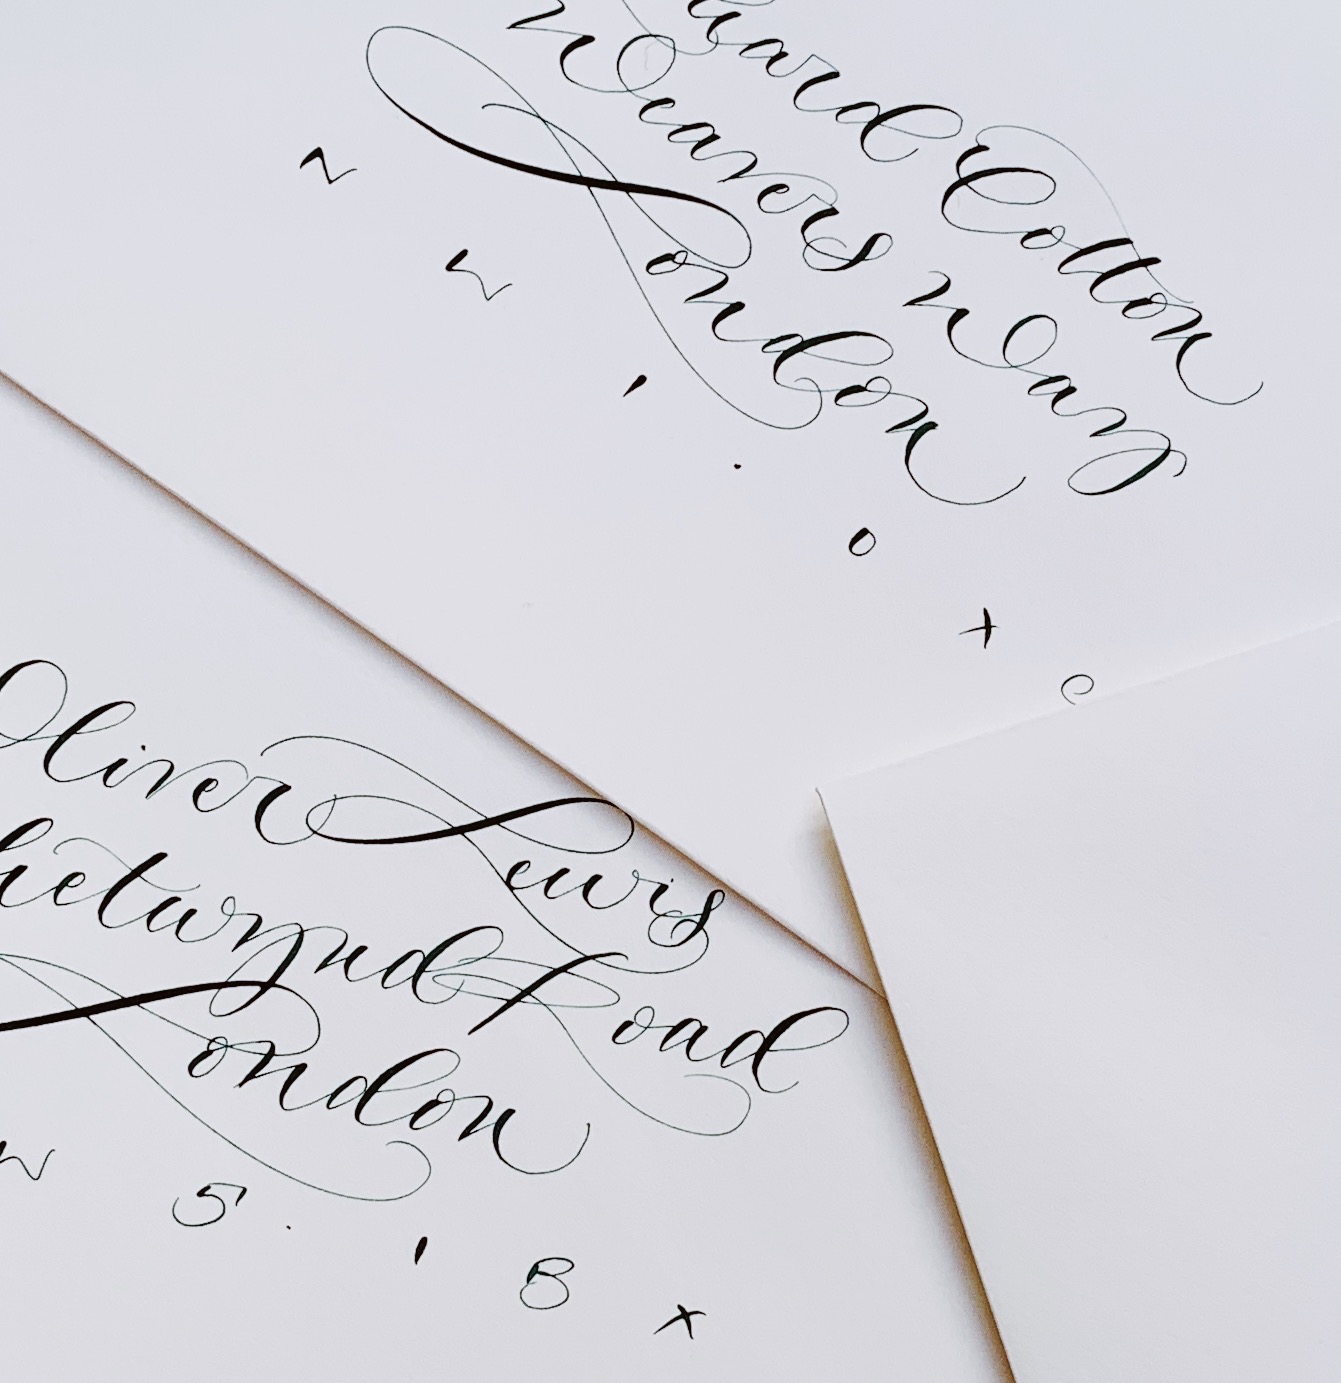 Cotton
Weavers Way
London
N W 1 . 0 X
Oliver Lewis
hetwynd Road
London
W 5 . 1 B X